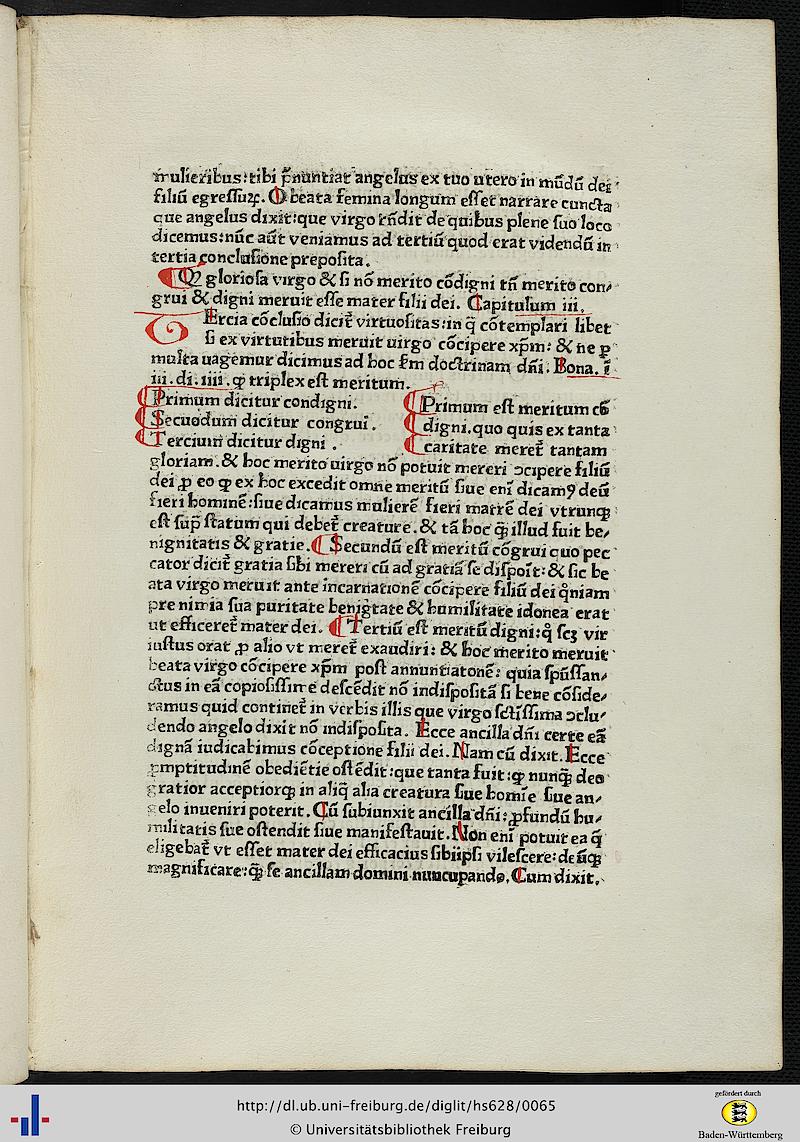 mulieribus: tibi p̄nuntiat angelus ex tuo utero in mūdū dei
filiū egressuꝝ. O beata femina longum esset narrare cuncta
que angelus dixit: que virgo rn̄dit de quibus plene suo loco
dicemus: nūc aūt veniamus ad tertiū quod erat videndū in
tertia conclusione preposita.
gloriosa virgo & si nō merito cōdigni tn̄ merito con⸗
grui & digni meruit esse mater filii dei. Capitulum iii.
Tercia cōclusio dicit̄ virtuositas: in q̄ cōtemplari libet
si ex virtutibus meruit uirgo cōcipere xp̄m: & ne ꝑ
multa uagemur dicimus ad hoc s̄m doctrinam dn̄i. Bona. ī
iii. di. iiii. ꝙ triplex est meritum.
Primum dicitur condigni.
Secuōdum dicitur congrui.
Tercium dicitur digni.
Primum est meritum cō
digni. quo quis ex tanta
caritate meret̄ tantam
gloriam. & hoc merito uirgo nō potuit mereri ↄcipere filiū
dei ꝓ eo ꝙ ex hoc excedit omne meritū siue enī dicamꝰ deū
fieri hominē: siue dicamus mulierē fieri matrē dei vtrunqꝫ
est sup̄ statum qui debet̄ creature. & tā hoc q̄ꝫ illud fuit be⸗
nignitatis & gratie. Secundū est meritū cōgrui quo pec
cator dicit̄ gratia sibi mereri cū ad gratiā se dispoīt: & sic be
ata virgo meruit ante incarnationē cōcipere filiū dei qm̄niam
pre nimia sua puritate benigtate & humilitate idonea erat
ut efficeret̄ mater dei. Tertiū est meritū digni: q̄ scꝫ vir
iustus orat ꝓ alio vt meret̄ exaudiri: & hoc merito meruit
beata virgo cōcipere xp̄m post annuntiatonē: quia spūssan⸗
ctus in eā copiosissime descēdit nō indispositā si bene cōside⸗
ramus quid continet̄ in verbis illis que virgo sctīssima ↄclu⸗
dendo angelo dixit nō indisposita. Ecce ancilla dn̄i certe eā
dignā iudicabimus cōceptione filii dei. Nam cū dixit. Ecce
ꝓmptitudinē obediētie ostēdit: que tanta fuit: ꝙ nunq̄ꝫ deo
gratior acceptiorqꝫ in aliq̄ alia creatura siue homīe siue an⸗
gelo inueniri poterit. Cū subiunxit ancilla dn̄i: ꝓfundū hu⸗
militatis sue ostendit siue manifestauit. Non enī potuit ea q̄
eligebat̄ vt esset mater dei efficacius sibiipsi vilescere: deūqꝫ
magnificare: q̄ꝫ se ancillam domini nuncupando. Cum dixit.
http://dl.ub.uni-freiburg.de/diglit/hs628/0065
© Universitätsbibliothek Freiburg
gefördert durch
Baden-Württemberg